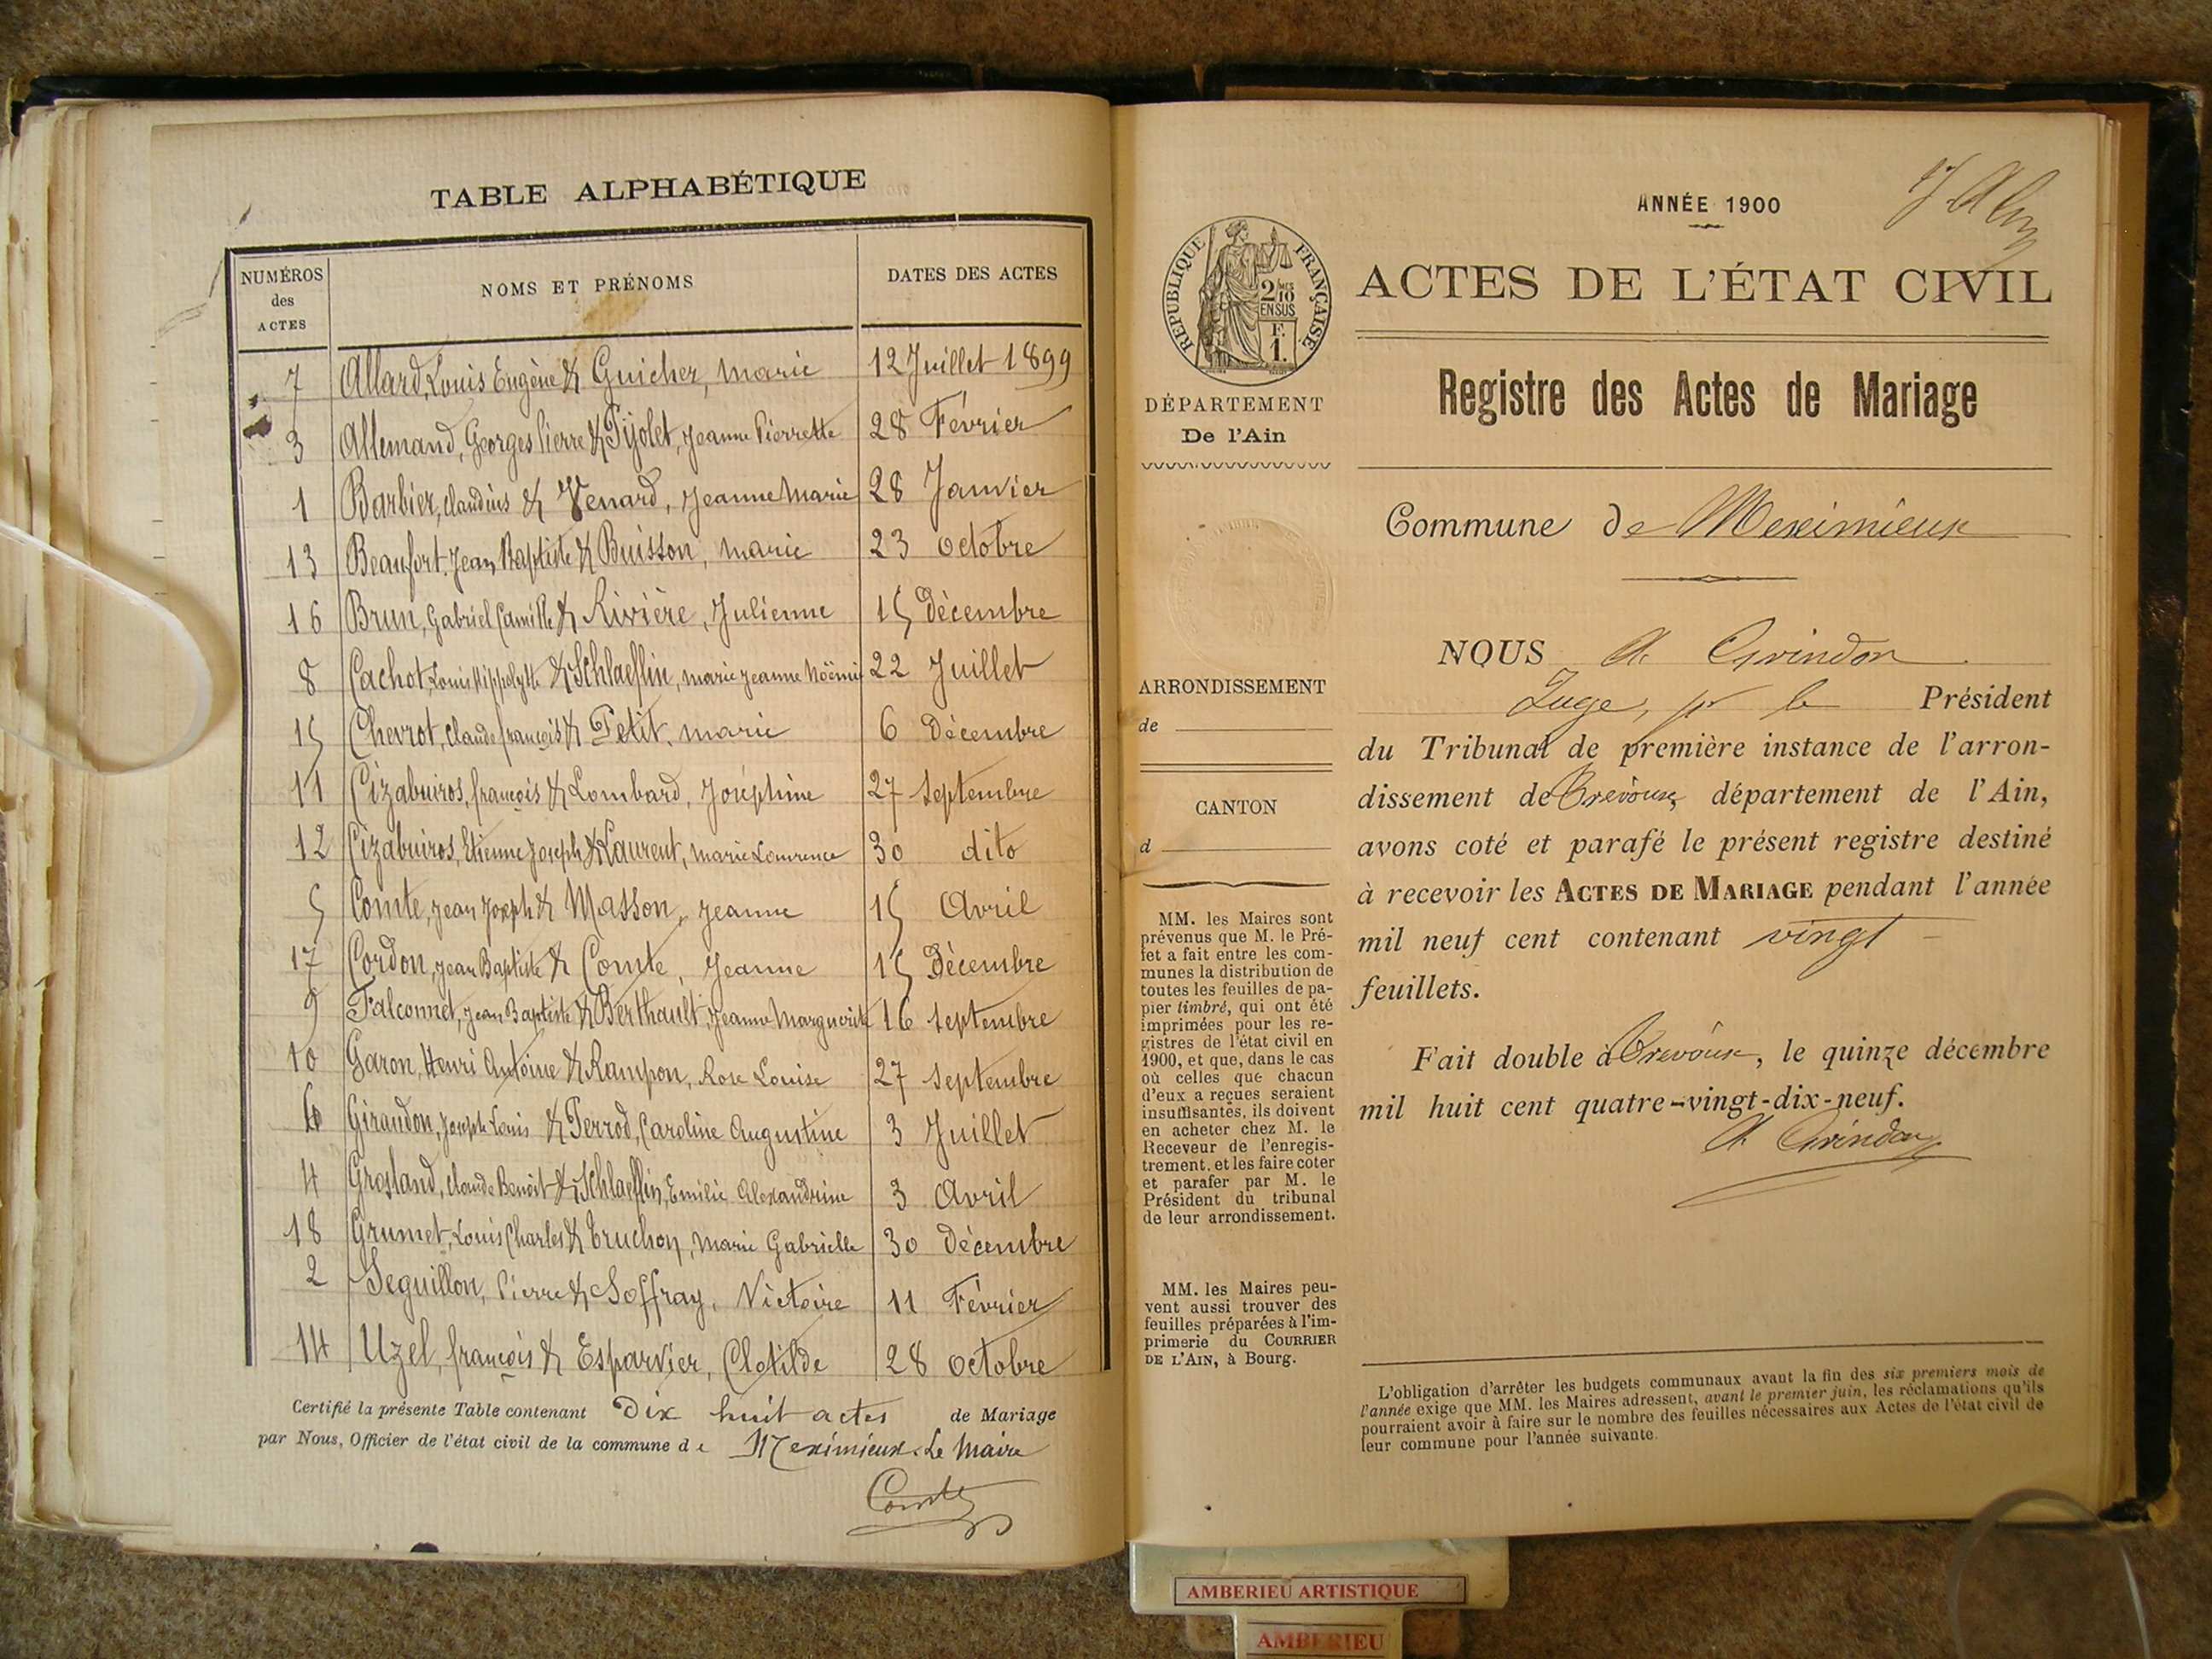 TABLE ALPHABÉTIQUE
NUMÉROS des ACTES NOMS ET PRÉNOMS DATES DES ACTES
7 Allard, Louis Eugène & Guicher, Marie 12 Juillet 1899
3 Allemand, Georges Pierre & Pijolet, Jeanne Pierrette 28 Février
1 Barbier, Claudius & Venard, Jeanne Marie 28 Janvier
13 Beaufort, Jean Baptiste & Buisson, Marie 23 octobre
16 Brun, Gabriel Camille & Rivière, Julienne 15 Décembre
8 Cachot, Louis Hippolyte & Schlaeflin, Marie Jeanne Noëmie 22 Juillet
15 Chevrot, Claude françois & Petit, Marie 6 Décembre
11 Cizabuiros, françois & Lombard, Joséphine 27 septembre
12 Cizabuiros, Etienne Joseph & Laurent, Marie Laurence 30 dito
5 Comte, Jean Joseph & Masson, Jeanne 15 Avril
17 Cordon, Jean Baptiste & Comte, Jeanne 15 Décembre
9 Falconnet, Jean Baptiste & Berthault, Jeanne Marguerite 16 septembre
10 Garon, Henri Antoine & Rampon, Rose Louise 27 septembre
6 Giraudon, Joseph Louis & Perrod, Caroline Augustine 3 Juillet
4 Grosland, Claude Benoît & Schlaeflin, Emilie Alexandrine 3 Avril
18 Grumet, Louis Charles & Truchon, Marie Gabrielle 30 Décembre
2 Seguillon, Pierre & Soffray, Victoire 11 Février
14 Uzel, françois & Esparvier, Clotilde 28 octobre
Certifié la présente Table contenant Dix huit actes de Mariage
par Nous, Officier de l'état civil de la commune de Meximieux. Le Maire
Comte
ANNÉE 1900
ACTES DE L'ÉTAT CIVIL
Registre des Actes de Mariage
RÉPUBLIQUE FRANÇAISE
2/10MES
EN SUS
F.
1.
DÉPARTEMENT
De l'Ain
Commune de Meximieux
ARRONDISSEMENT
de
CANTON
d
NOUS A. Grindon
Juge, pr le Président
du Tribunal de première instance de l'arron-
dissement de Trévoux, département de l'Ain,
avons coté et parafé le présent registre destiné
à recevoir les ACTES DE MARIAGE pendant l'année
mil neuf cent contenant vingt
feuillets.
Fait double à Trévoux, le quinze décembre
mil huit cent quatre-vingt-dix-neuf.
A. Grindon
MM. les Maires sont
prévenus que M. le Pré-
fet a fait entre les com-
munes la distribution de
toutes les feuilles de pa-
pier timbré, qui ont été
imprimées pour les re-
gistres de l'état civil en
1900, et que, dans le cas
où celles que chacun
d'eux a reçues seraient
insuffisantes, ils doivent
en acheter chez M. le
Receveur de l'enregis-
trement, et les faire coter
et parafer par M. le
Président du tribunal
de leur arrondissement.
MM. les Maires peu-
vent aussi trouver des
feuilles préparées à l'im-
primerie du COURRIER
DE L'AIN, à Bourg.
L'obligation d'arrêter les budgets communaux avant la fin des six premiers mois de
l'année exige que MM. les Maires adressent, avant le premier juin, les réclamations qu'ils
pourraient avoir à faire sur le nombre des feuilles nécessaires aux Actes de l'état civil de
leur commune pour l'année suivante.
AMBERIEU ARTISTIQUE
AMBERIEU